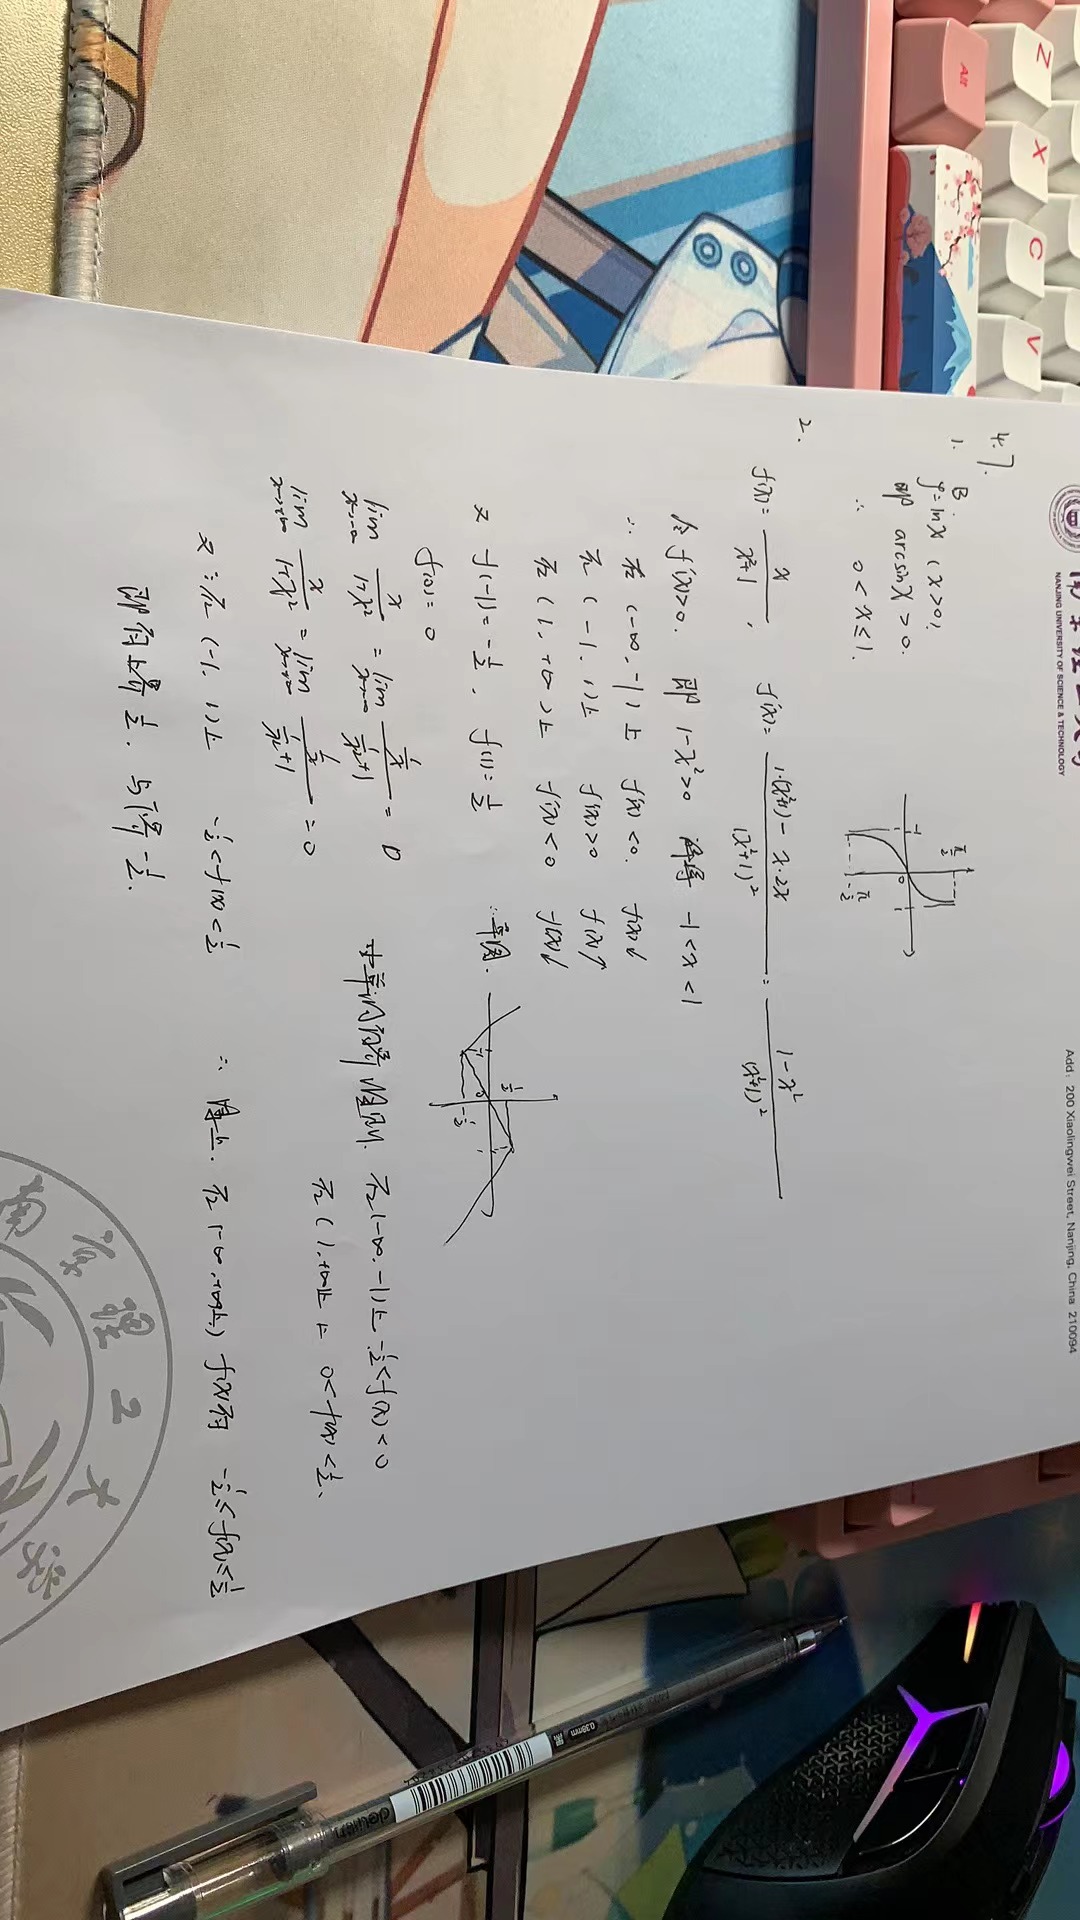 NANJING UNIVERSITY OF SCIENCE & TECHNOLOGY
Add: 200 Xiaolingwei Street, Nanjing, China 210094
4.7.
1. B.
y=lnx (x>0),
即 arcsinx>0.
∴ 0<x≤1.
π/2
-1 0 1
-π/2
2.
f(x)= x/(x²+1), f'(x)= (1·(x²+1) - x·2x)/(x²+1)² = (1-x²)/(x²+1)²
令 f'(x)>0. 即 1-x²>0 解得 -1<x<1
∴ 在 (-∞,-1)上 f'(x)<0. f(x)↓
在 (-1,1)上 f'(x)>0 f(x)↑
在 (1,+∞)上 f'(x)<0 f(x)↓
又 f(-1)=-1/2, f(1)=1/2 ∴草图.
1/2
-1 0 1
-1/2
f(0)=0
lim x→-∞ x/(1+x²) = lim x→-∞ (1/x)/(1/x²+1) = 0
lim x→+∞ x/(1+x²) = lim x→+∞ (1/x)/(1/x²+1) = 0
在(-∞,-1)上 -1/2<f(x)<0
在(1,+∞)上 0<f(x)<1/2.
又∵在(-1,1)上 -1/2<f(x)<1/2 ∴ 在(-∞,+∞)上 f(x)有 -1/2≤f(x)≤1/2
即有上界1/2. 与下界-1/2.
南京理工大学
Alt
Z
X
C
V
0.38mm
deli